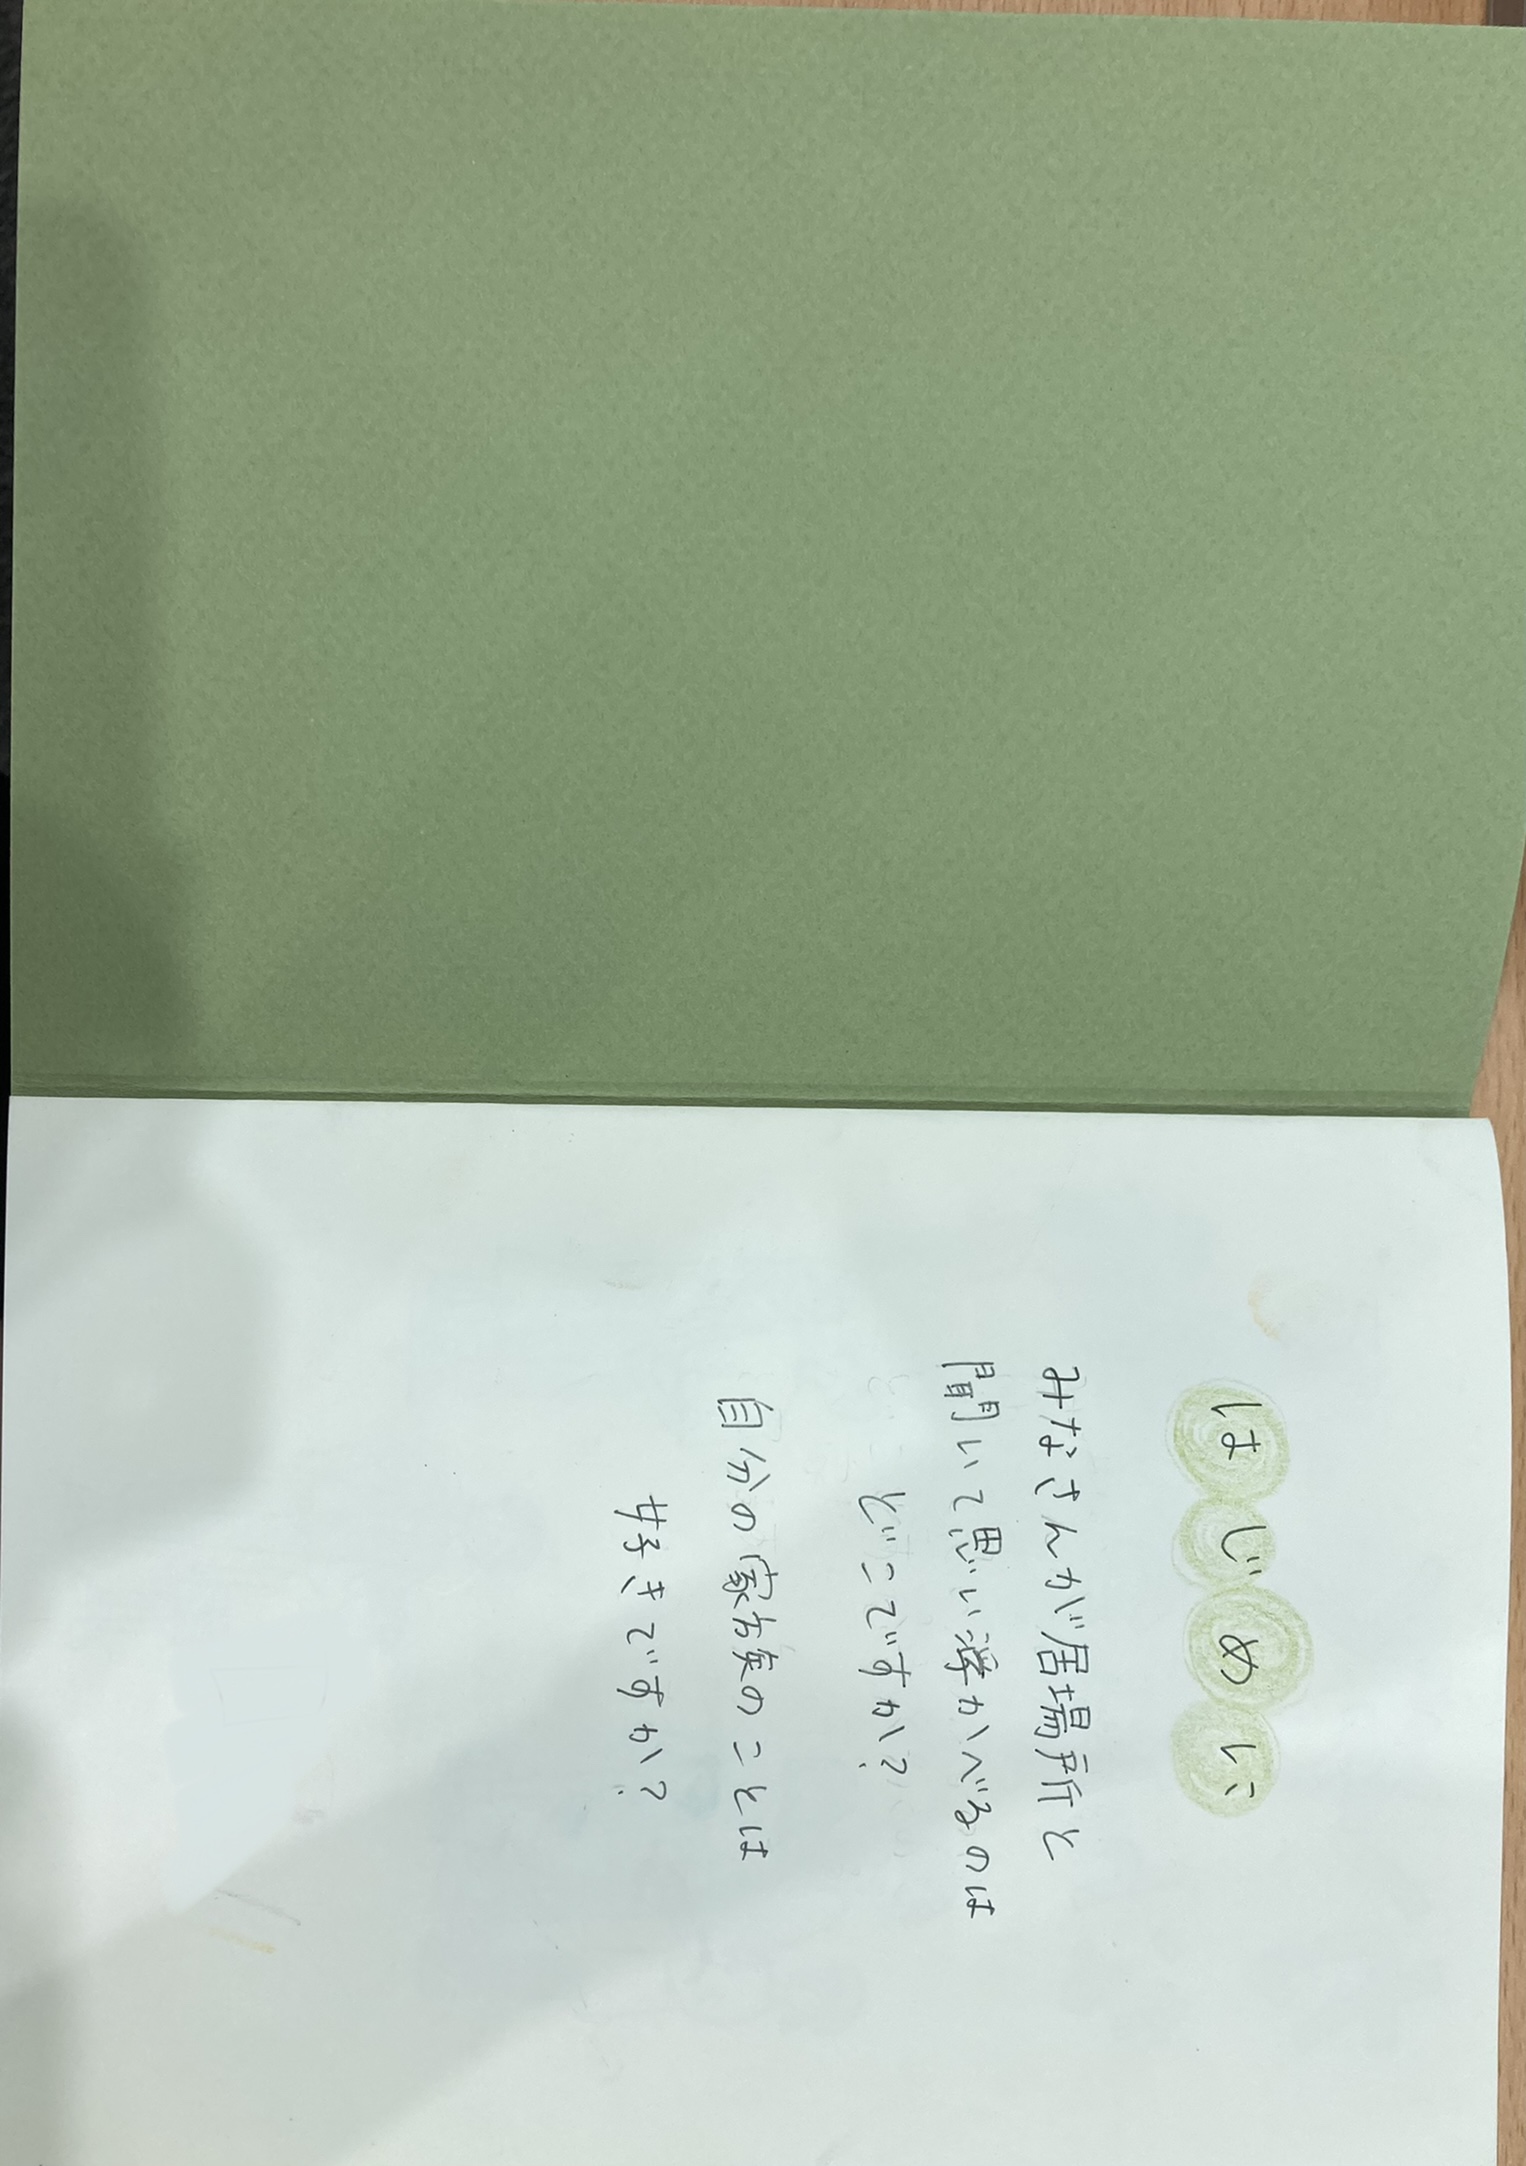 はじめに
みなさんが居場所と
聞いて思い浮かべるのは
どこですか？
自分の家族のことは
好きですか？